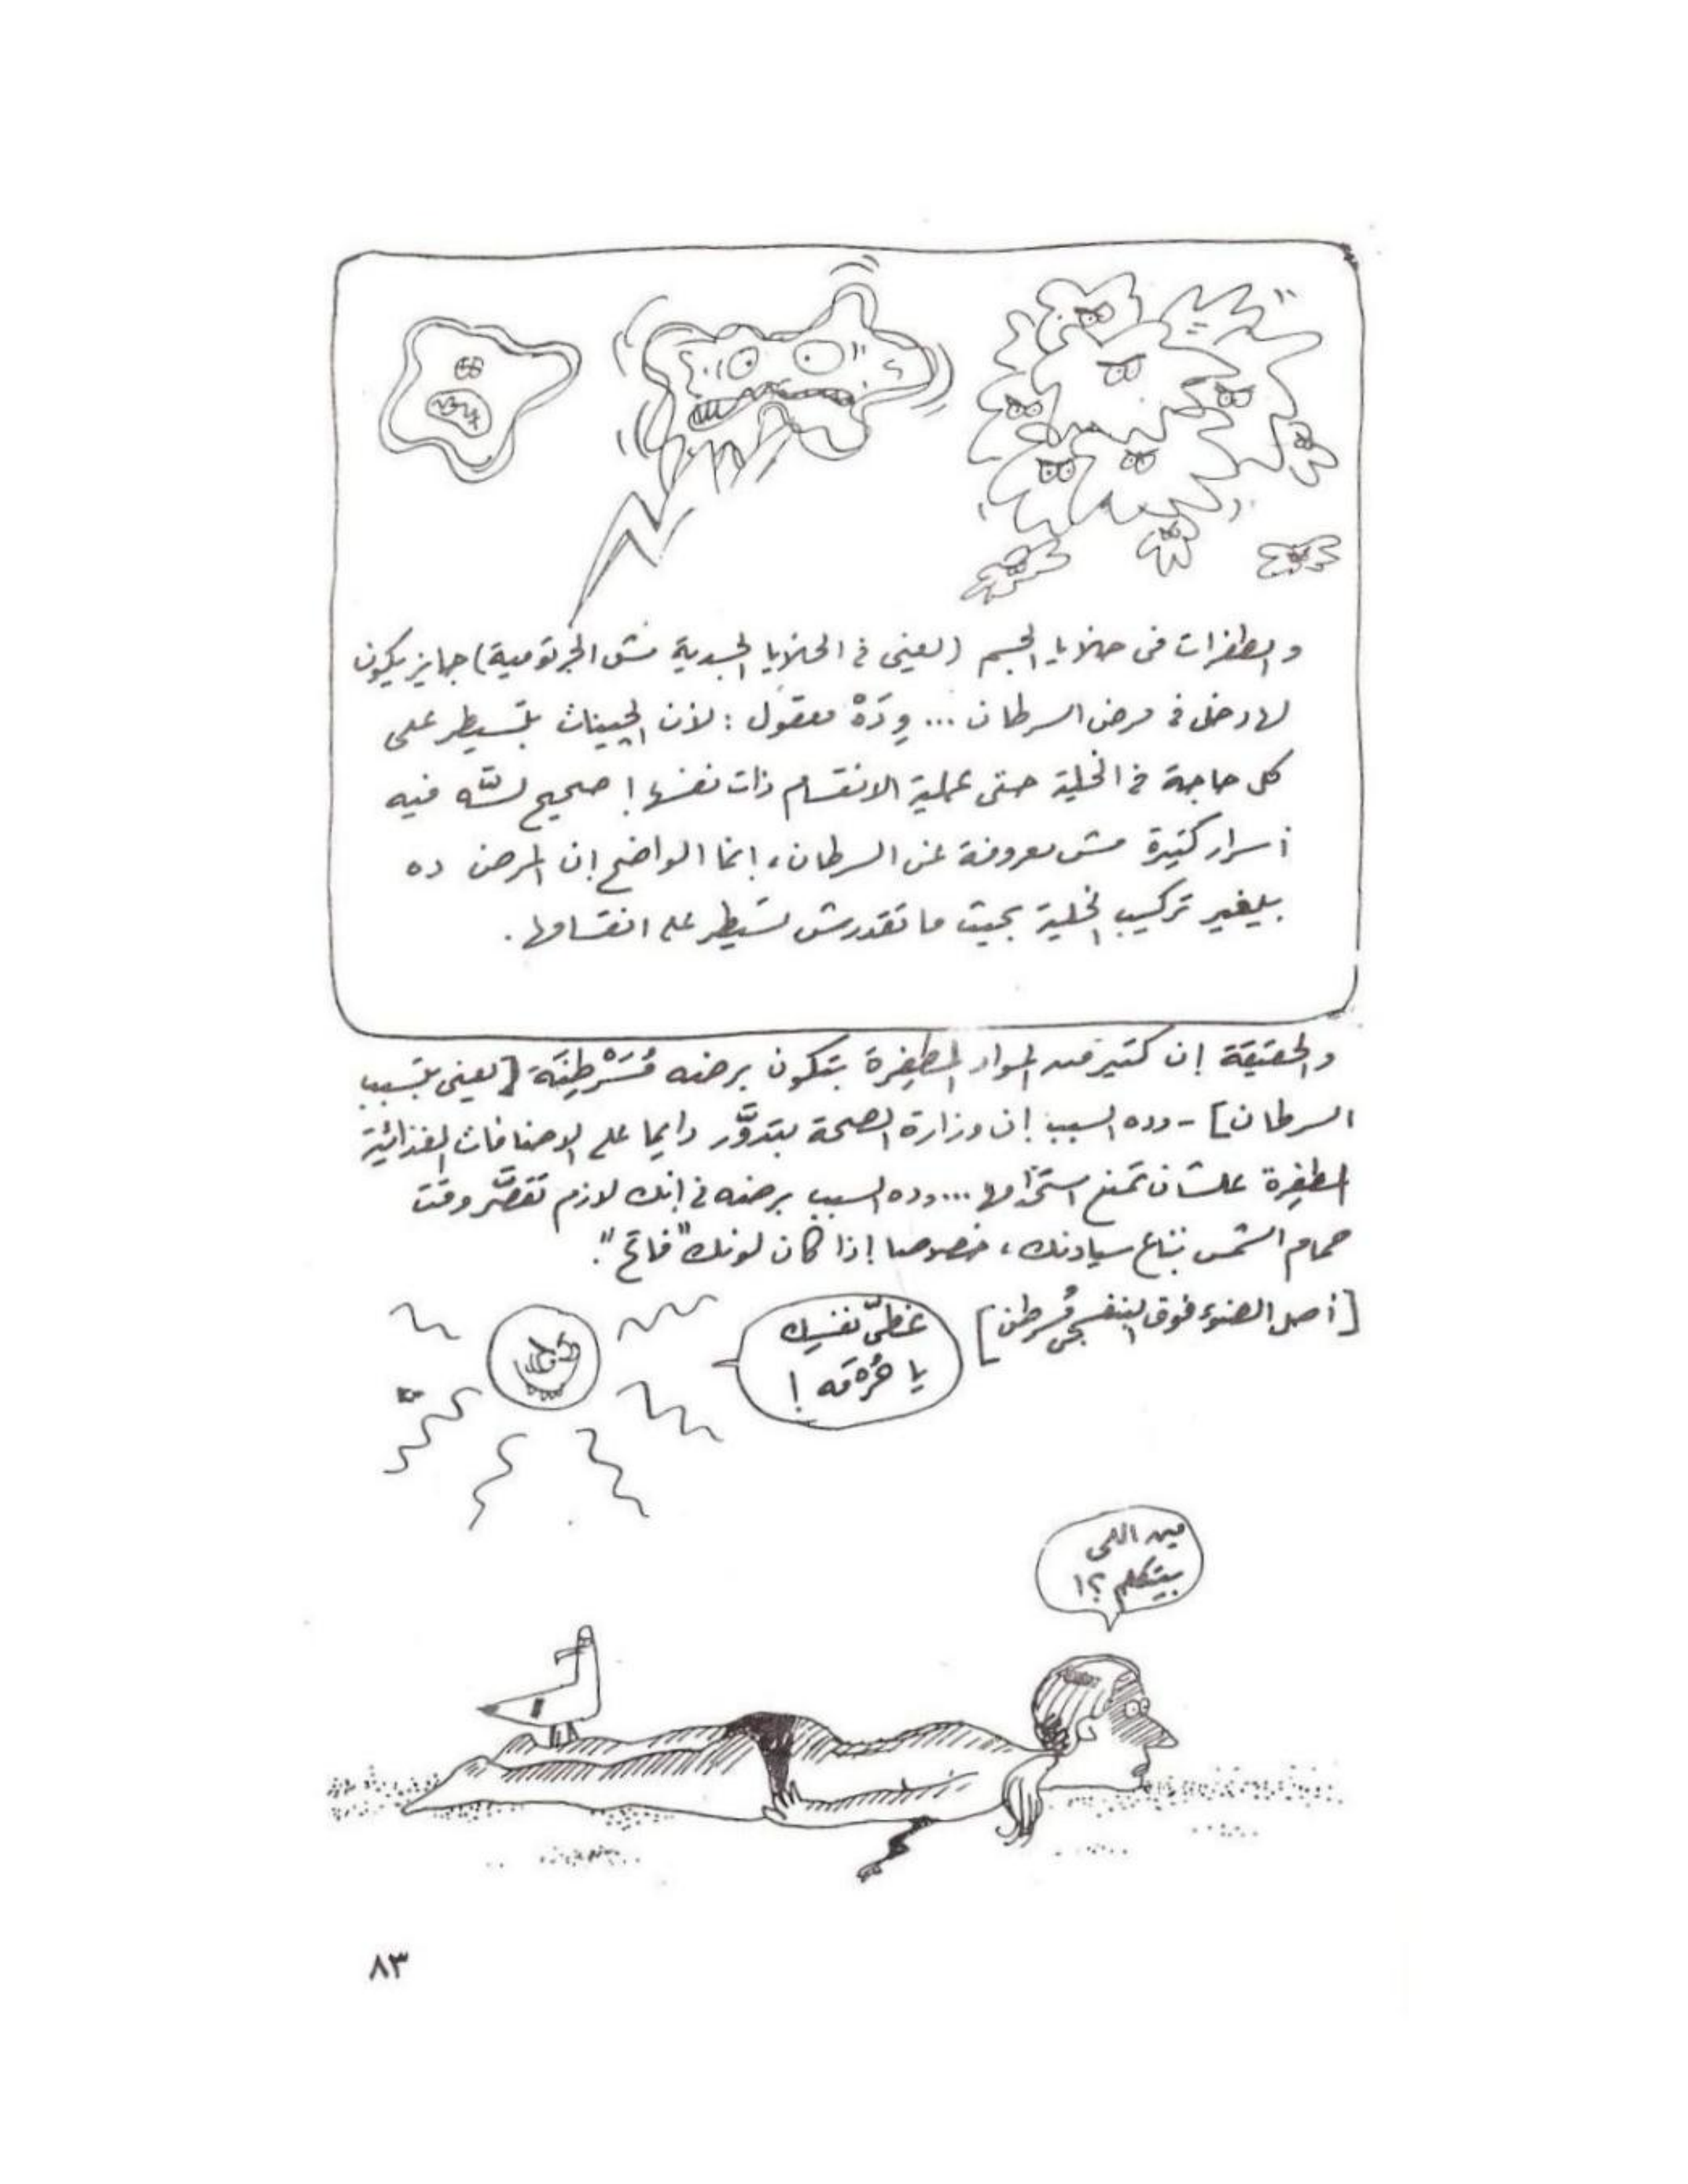 والطفرات فى خلايا الجسم (يعنى فى الخلايا الجسدية مش الجرثومية) جايز يكون
لها دخل فى مرض السرطان ... وِدَهْ معقول : لأن الجينات بتسيطر على
كل حاجة فى الخلية حتى عملية الانقسام ذات نفسها ! صحيح لسّه فيه
أسرار كتيرة مش معروفة عن السرطان، إنما الواضح إن المرض ده
بيغير تركيب الخلية بحيث ما تقدرش تسيطر على انقسامها .
والحقيقة إن كتير من المواد المطفِرة بتكون برضه مُسَرْطِنَة [يعنى بتسبب
السرطان] - وده السبب إن وزارة الصحة بتدوَّر دايما على الإضافات الغذائية
المطفِرة علشان تمنع استخدامها .... وده السبب برضه فى إنك لازم تقصَّر وقت
حمام الشمس بتاع سيادتك ، خصوصا إذا كان لونك "فاتح".
[أصل الضوء فوق البنفسجى مُسرطن]
غطّى نفسِك
يا مَرَه !
مين اللى
بيتكلم ؟!
٨٣